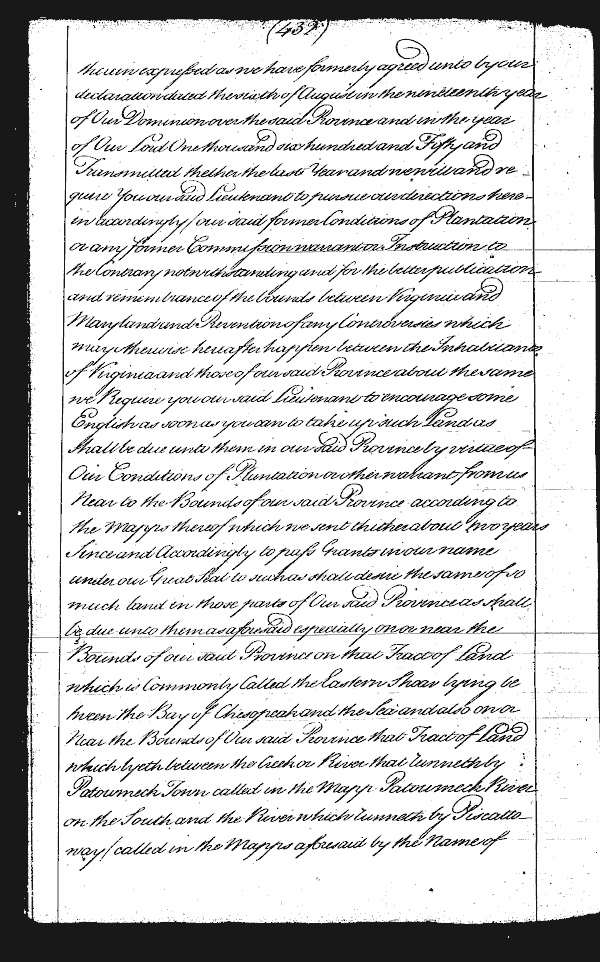 (432)
therein expressed as we have formerly agreed unto by our
declaration dated the sixth of August in the nineteenth year
of Our Dominion over the said Province and in the year
of Our Lord One thousand six hundred and Fifty and
Transmitted thether the last Year and we will and re-
quire You our said Lieutenant to pursue our directions here-
in accordingly (our said former Conditions of Plantation
or any former Commission warrant or Instruction to
the Contrary notwithstanding and for the better publication
and remembrance of the bounds between Virginia and
Maryland and Prevention of any Controversies which
may otherwise hereafter happen between the Inhabitants
of Virginia and those of our said Province about the same
we Require you our said Lieutenant to encourage some
English as soon as you can to take up such Land as
shall be due unto them in our said Province by virtue of
Our Conditions of Plantation or other warrant from us
Near to the Bounds of our said Province according to
the Mapps thereof which we sent thither about two years
Since and Accordingly to pass Grants in our name
under our Great Seal to such as shall desire the same of so
much land in those parts of Our said Province as shall
be due unto them as aforesaid especially on or near the
Bounds of our said Province on that Tract of Land
which is Commonly Called the Eastern Shoar lying be
tween the Bay of Chesopeak and the Sea and also on or
Near the Bounds of Our said Province that Tract of Land
which lyeth between the Creek or River that runneth by
Patowmeck Town called in the Mapp Patowmeck River
on the South and the River which runneth by Piscatto-
way (called in the Mapps aforesaid by the Name of